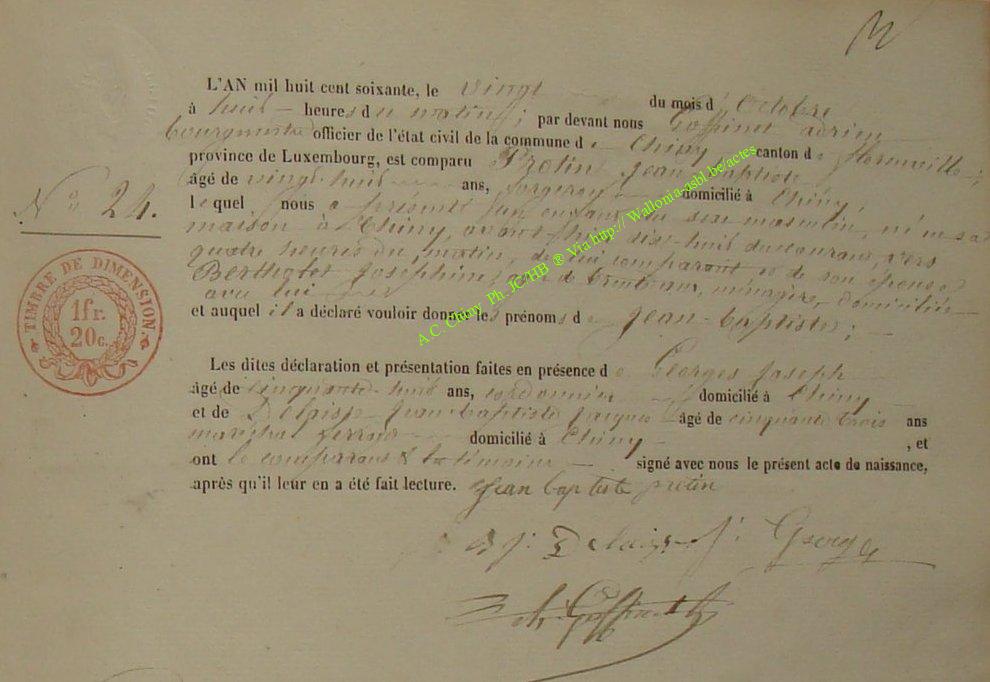 L'AN mil huit cent soixante, le vingt du mois d'Octobre
à huit heures du matin ; par devant nous Goffinet Adrien
bourgmestre officier de l'état civil de la commune de Chiny canton de Florenville ;
province de Luxembourg, est comparu Protin Jean-Baptiste
âgé de vingt-huit ans, forgeron domicilié à Chiny,
lequel nous a présenté un enfant du sexe masculin, né en sa
maison à Chiny, avant-hier dix-huit du courant, vers
quatre heures du matin, de lui comparant et de son épouse
Bertholet Joséphine, âgée de trente ans, ménagère, domiciliée
avec lui
et auquel il a déclaré vouloir donner les prénoms de Jean-Baptiste ;
No 24.
TIMBRE DE DIMENSION.
1fr.
20c.
Les dites déclaration et présentation faites en présence de Georges Joseph
âgé de cinquante-huit ans, cordonnier domicilié à Chiny
et de Jean Baptiste Jacques âgé de cinquante trois ans
maréchal ferrant domicilié à Chiny , et
ont le comparant & les témoins signé avec nous le présent acte de naissance,
après qu'il leur en a été fait lecture. Jean baptiste protin
j. George
A.C. Chiny Ph. JC/HB ® Via http:// Wallonia-asbl.be/actes